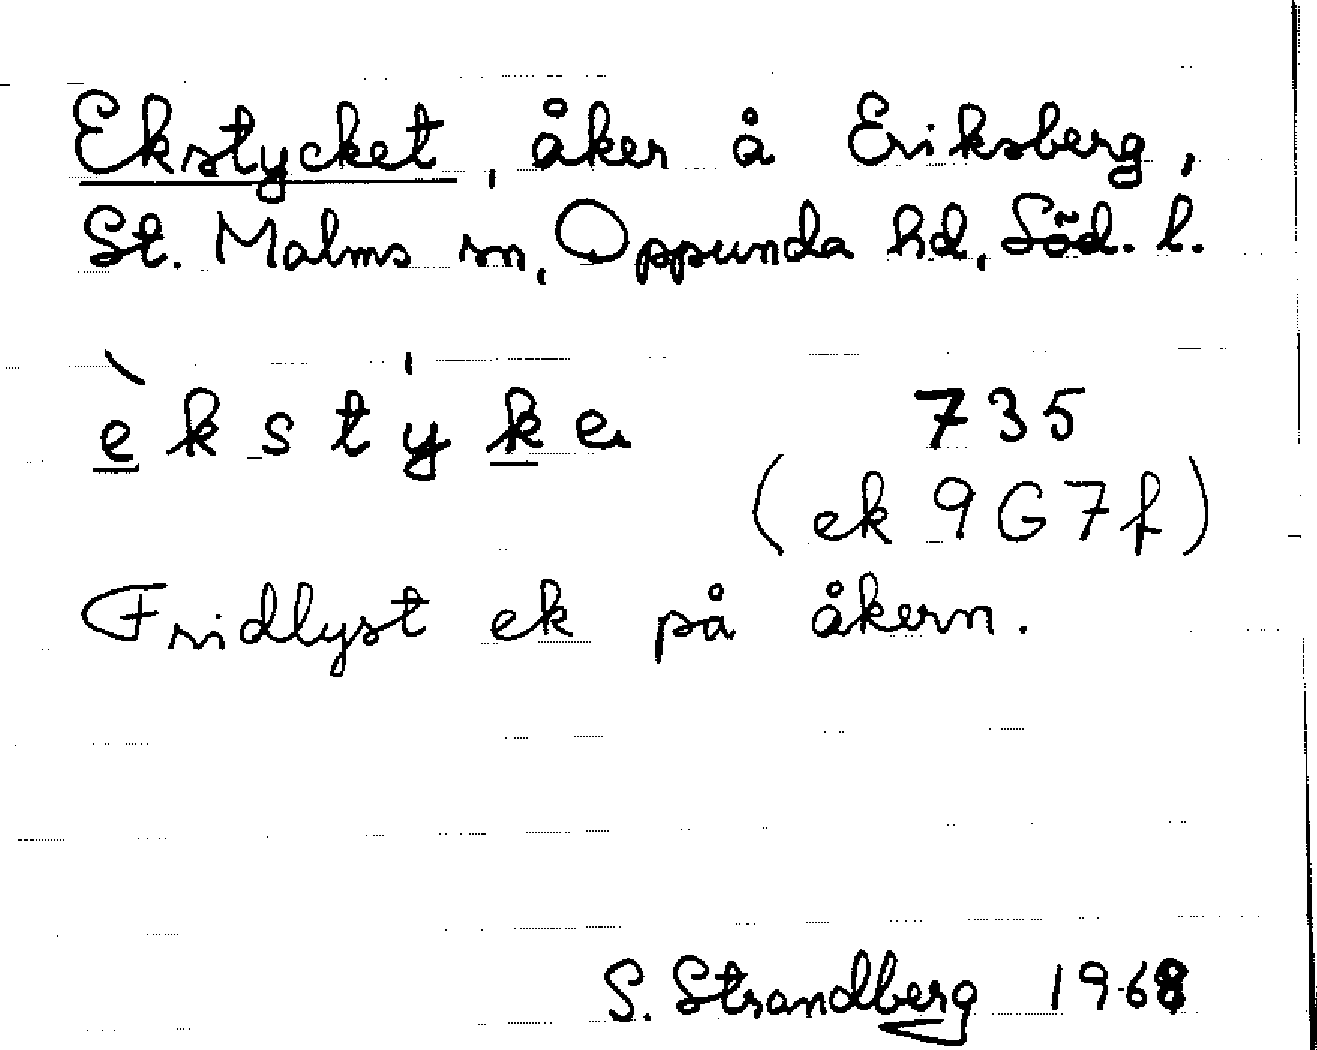 Ekstycket, åker å Eriksberg,
St. Malms sn, Oppunda hd, Söd. l.
èkstýke 735
(ek 9G7f)
Fridlyst ek på åkern.
S. Strandberg 1968